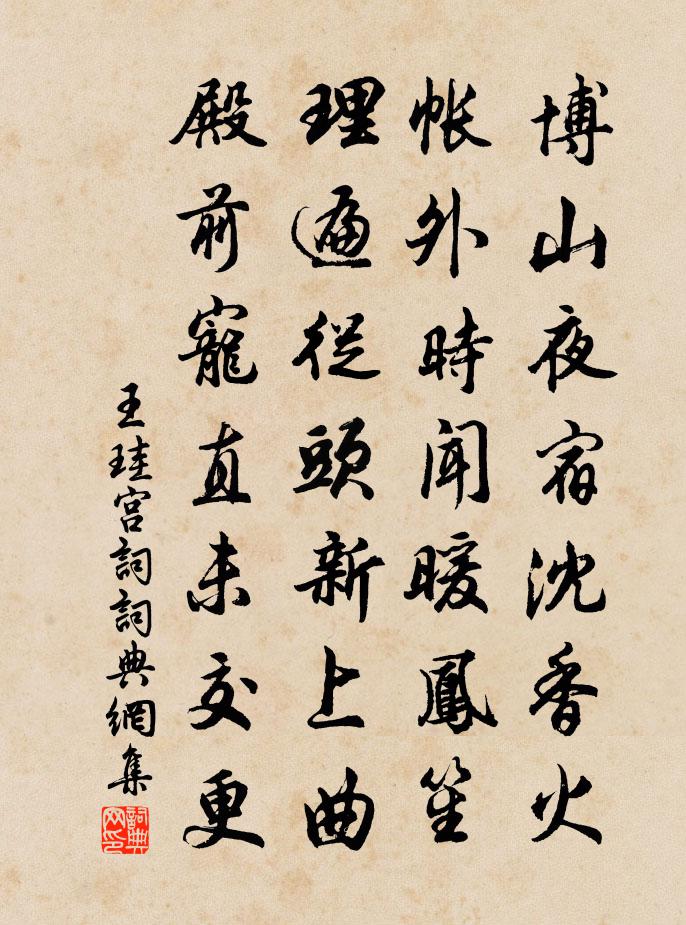 博山夜宿沈香火
帳外時聞暖鳳笙
理遍從頭新上曲
殿前寵直未交更
王珪宮詞詞典網集
詞典網印